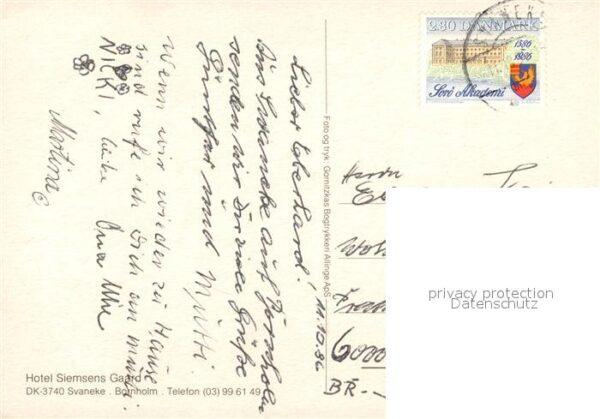 2.80 DANMARK
1586
1986
Sorø Akademi
Lieber Eberhard! 11.10.86
Aus Svaneke auf Bornholm
senden wir Dir viele Grüße
und Mutti.
Wenn wir wieder zu Hause
sind rufe ich Dich an
NICKI,
Oma
Martina
Foto og tryk: Gornitzkas Bogtrykkeri Allinge ApS
Herrn
Wol
6000
BR.-
privacy protection
Datenschutz
Hotel Siemsens Gaard
DK-3740 Svaneke . Bornholm . Telefon (03) 99 61 49